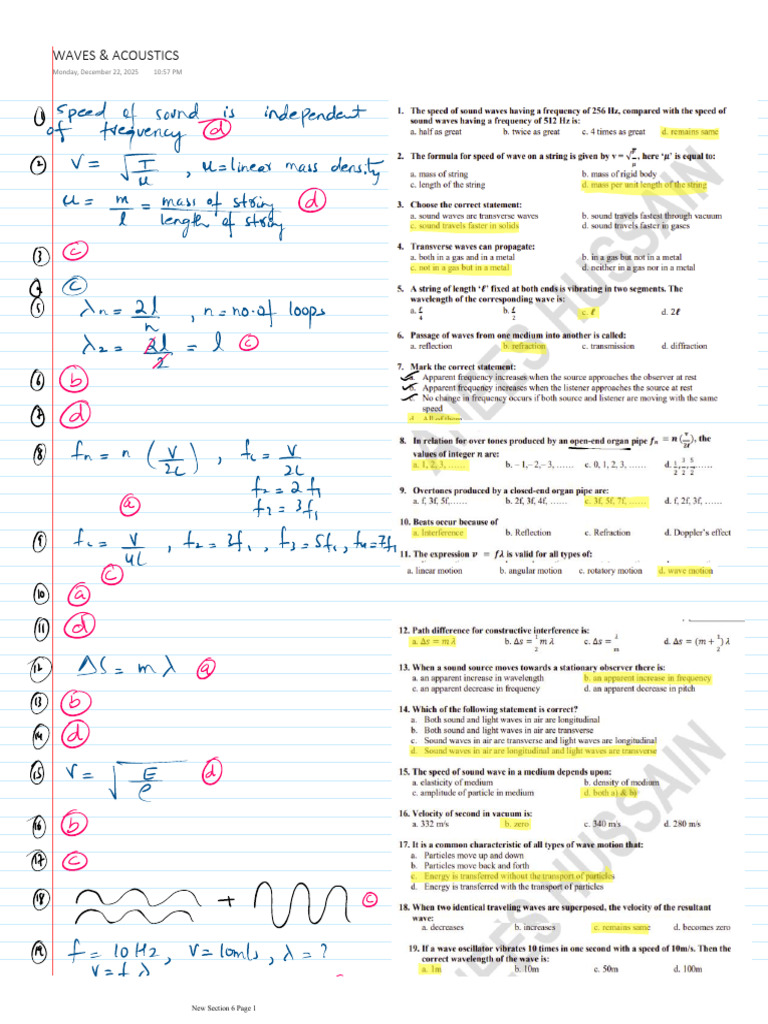 WAVES & ACOUSTICS
Monday, December 22, 2025 10:57 PM
① Speed of sound is independent
of frequency ⓓ
② V = √(T/u) , u = linear mass density
u = m/l = mass of string/length of string ⓓ
③ ⓒ
④ ⓒ
⑤ λn = 2l/n , n = no. of loops
λ2 = 2l/2 = l ⓒ
⑥ ⓑ
⑦ ⓓ
⑧ fn = n (V/2L) , f1 = V/2L
f2 = 2f1
f3 = 3f1
ⓐ
⑨ f1 = V/4L , f2 = 3f1 , f3 = 5f1 , f4 = 7f1
ⓒ
⑩ ⓐ
⑪ ⓓ
⑫ ΔS = mλ ⓐ
⑬ ⓑ
⑭ ⓓ
⑮ V = √(E/ρ) ⓓ
⑯ ⓑ
⑰ ⓒ
⑱ + ⓒ
⑲ f = 10Hz , V = 10m/s , λ = ?
V = fλ
1. The speed of sound waves having a frequency of 256 Hz, compared with the speed of
sound waves having a frequency of 512 Hz is:
a. half as great b. twice as great c. 4 times as great d. remains same
2. The formula for speed of wave on a string is given by v = √(T/μ), here 'μ' is equal to:
a. mass of string b. mass of rigid body
c. length of the string d. mass per unit length of the string
3. Choose the correct statement:
a. sound waves are transverse waves b. sound travels fastest through vacuum
c. sound travels faster in solids d. sound travels faster in gases
4. Transverse waves can propagate:
a. both in a gas and in a metal b. in a gas but not in a metal
c. not in a gas but in a metal d. neither in a gas nor in a metal
5. A string of length 'ℓ' fixed at both ends is vibrating in two segments. The
wavelength of the corresponding wave is:
a. ℓ/4 b. ℓ/2 c. ℓ d. 2ℓ
6. Passage of waves from one medium into another is called:
a. reflection b. refraction c. transmission d. diffraction
7. Mark the correct statement:
a. Apparent frequency increases when the source approaches the observer at rest
b. Apparent frequency increases when the listener approaches the source at rest
c. No change in frequency occurs if both source and listener are moving with the same
speed
d. All of these
8. In relation for over tones produced by an open-end organ pipe fn = n (v/2ℓ), the
values of integer n are:
a. 1, 2, 3, …… b. – 1, –2, –3, …… c. 0, 1, 2, 3, …… d. 1/2, 3/2, 5/2 ……
9. Overtones produced by a closed-end organ pipe are:
a. f, 3f, 5f,…… b. 2f, 3f, 4f, …… c. 3f, 5f, 7f, …… d. f, 2f, 3f, ……
10. Beats occur because of
a. Interference b. Reflection c. Refraction d. Doppler's effect
11. The expression v = fλ is valid for all types of:
a. linear motion b. angular motion c. rotatory motion d. wave motion
12. Path difference for constructive interference is:
a. Δs = m λ b. Δs = 1/2 m λ c. Δs = λ/m d. Δs = (m + 1/2) λ
13. When a sound source moves towards a stationary observer there is:
a. an apparent increase in wavelength b. an apparent increase in frequency
c. an apparent decrease in frequency d. an apparent decrease in pitch
14. Which of the following statement is correct?
a. Both sound and light waves in air are longitudinal
b. Both sound and light waves in air are transverse
c. Sound waves in air are transverse and light waves are longitudinal
d. Sound waves in air are longitudinal and light waves are transverse
15. The speed of sound wave in a medium depends upon:
a. elasticity of medium b. density of medium
c. amplitude of particle in medium d. both a) & b)
16. Velocity of second in vacuum is:
a. 332 m/s b. zero c. 340 m/s d. 280 m/s
17. It is a common characteristic of all types of wave motion that:
a. Particles move up and down
b. Particles move back and forth
c. Energy is transferred without the transport of particles
d. Energy is transferred with the transport of particles
18. When two identical traveling waves are superposed, the velocity of the resultant
wave:
a. decreases b. increases c. remains same d. becomes zero
19. If a wave oscillator vibrates 10 times in one second with a speed of 10m/s. Then the
correct wavelength of the wave is:
a. 1m b. 10m c. 50m d. 100m
ANEES HUSSAIN
ANEES HUSSAIN
New Section 6 Page 1